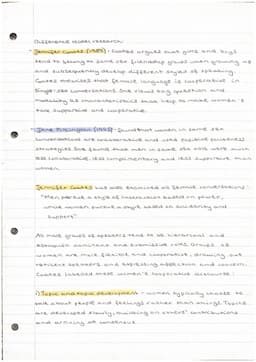 Difference model research:
Jennifer Coates (1989) - Coates argues that girls and boys
tend to belong to same sex friendship groups when growing up
and subsequently develop different styles of speaking.
Coates that female language is cooperative in
single-sex conversations. She views tag question and
modality as characteristics that help to make women's
talk supportive and cooperative.
Jane Pilkington - found that women in same sex
conversations are collaborative and use positive politeness
strategies. She found that men in same sex talk were much
less collaborative, less complimentary and less supportive than
women.
Jennifer Coates has also examined all female conversations:
"Men pursue a style of interaction based on power,
while women pursue a style based on solidarity and
support"
All male groups of speakers tend to be hierarchical and
establish dominant and submissive roles. Groups of
women are more flexible and cooperative, drawing out
reticent speakers and expressing affection and concern.
Coates labelled these women's cooperative discourse:
1) Topic and topic development - women typically choose to
talk about people and feelings rather than things. Topics
are developed slowly, building on others' contributions
and arriving at consensus